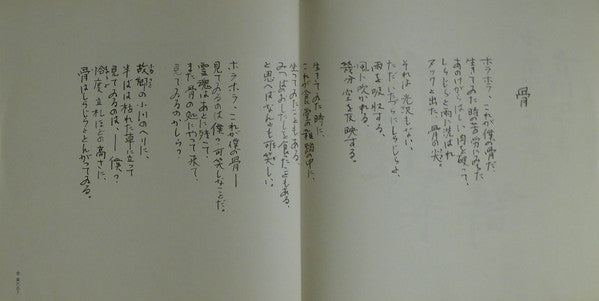 骨
ホラホラ、これが僕の骨だ、
生きてゐた時の苦労にみちた
あのけがらはしい肉を破つて、
しらじらと雨に洗はれ
ヌックと出た、骨の尖。
それは光沢もない、
ただいたづらにしらじらと、
雨を吸収する、
風に吹かれる、
幾分空を反映する。
生きてゐた時に、
これが食堂の雑踏の中に、
坐つてゐたこともある、
みつばのおしたしを食つたこともある、
と思へばなんとも可笑しい。
ホラホラ、これが僕の骨——
見てゐるのは僕? 可笑しなことだ。
霊魂はあとに残つて、
また骨の処にやつて来て、
見てゐるのかしら?
故郷の小川のへりに、
半ばは枯れた草に立つて
見てゐるのは、——僕?
恰度立札ほどの高さに、
骨はしらじらととんがつてゐる。